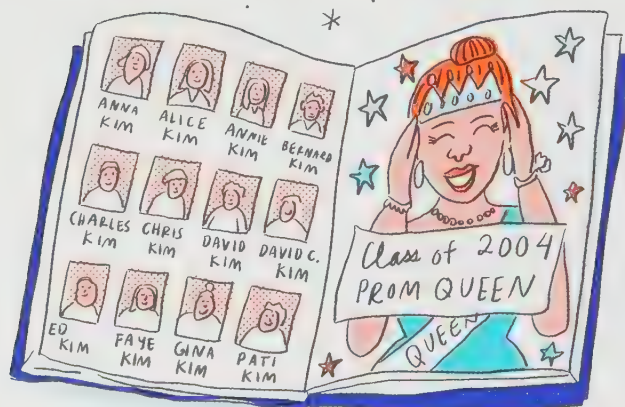 *
ANNA
KIM
ALICE
KIM
ANNIE
KIM
BERNARD
KIM
CHARLES
KIM
CHRIS
KIM
DAVID
KIM
DAVID C.
KIM
ED
KIM
FAYE
KIM
GINA
KIM
PATI
KIM
Class of 2004
PROM QUEEN
QUEEN